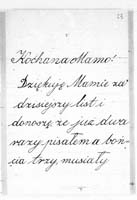 Kochana Mamo!
Dziękuję Mamie za
dzisiejszy list i
donoszę ze już dwa
razy pisałem a
trzy musiały